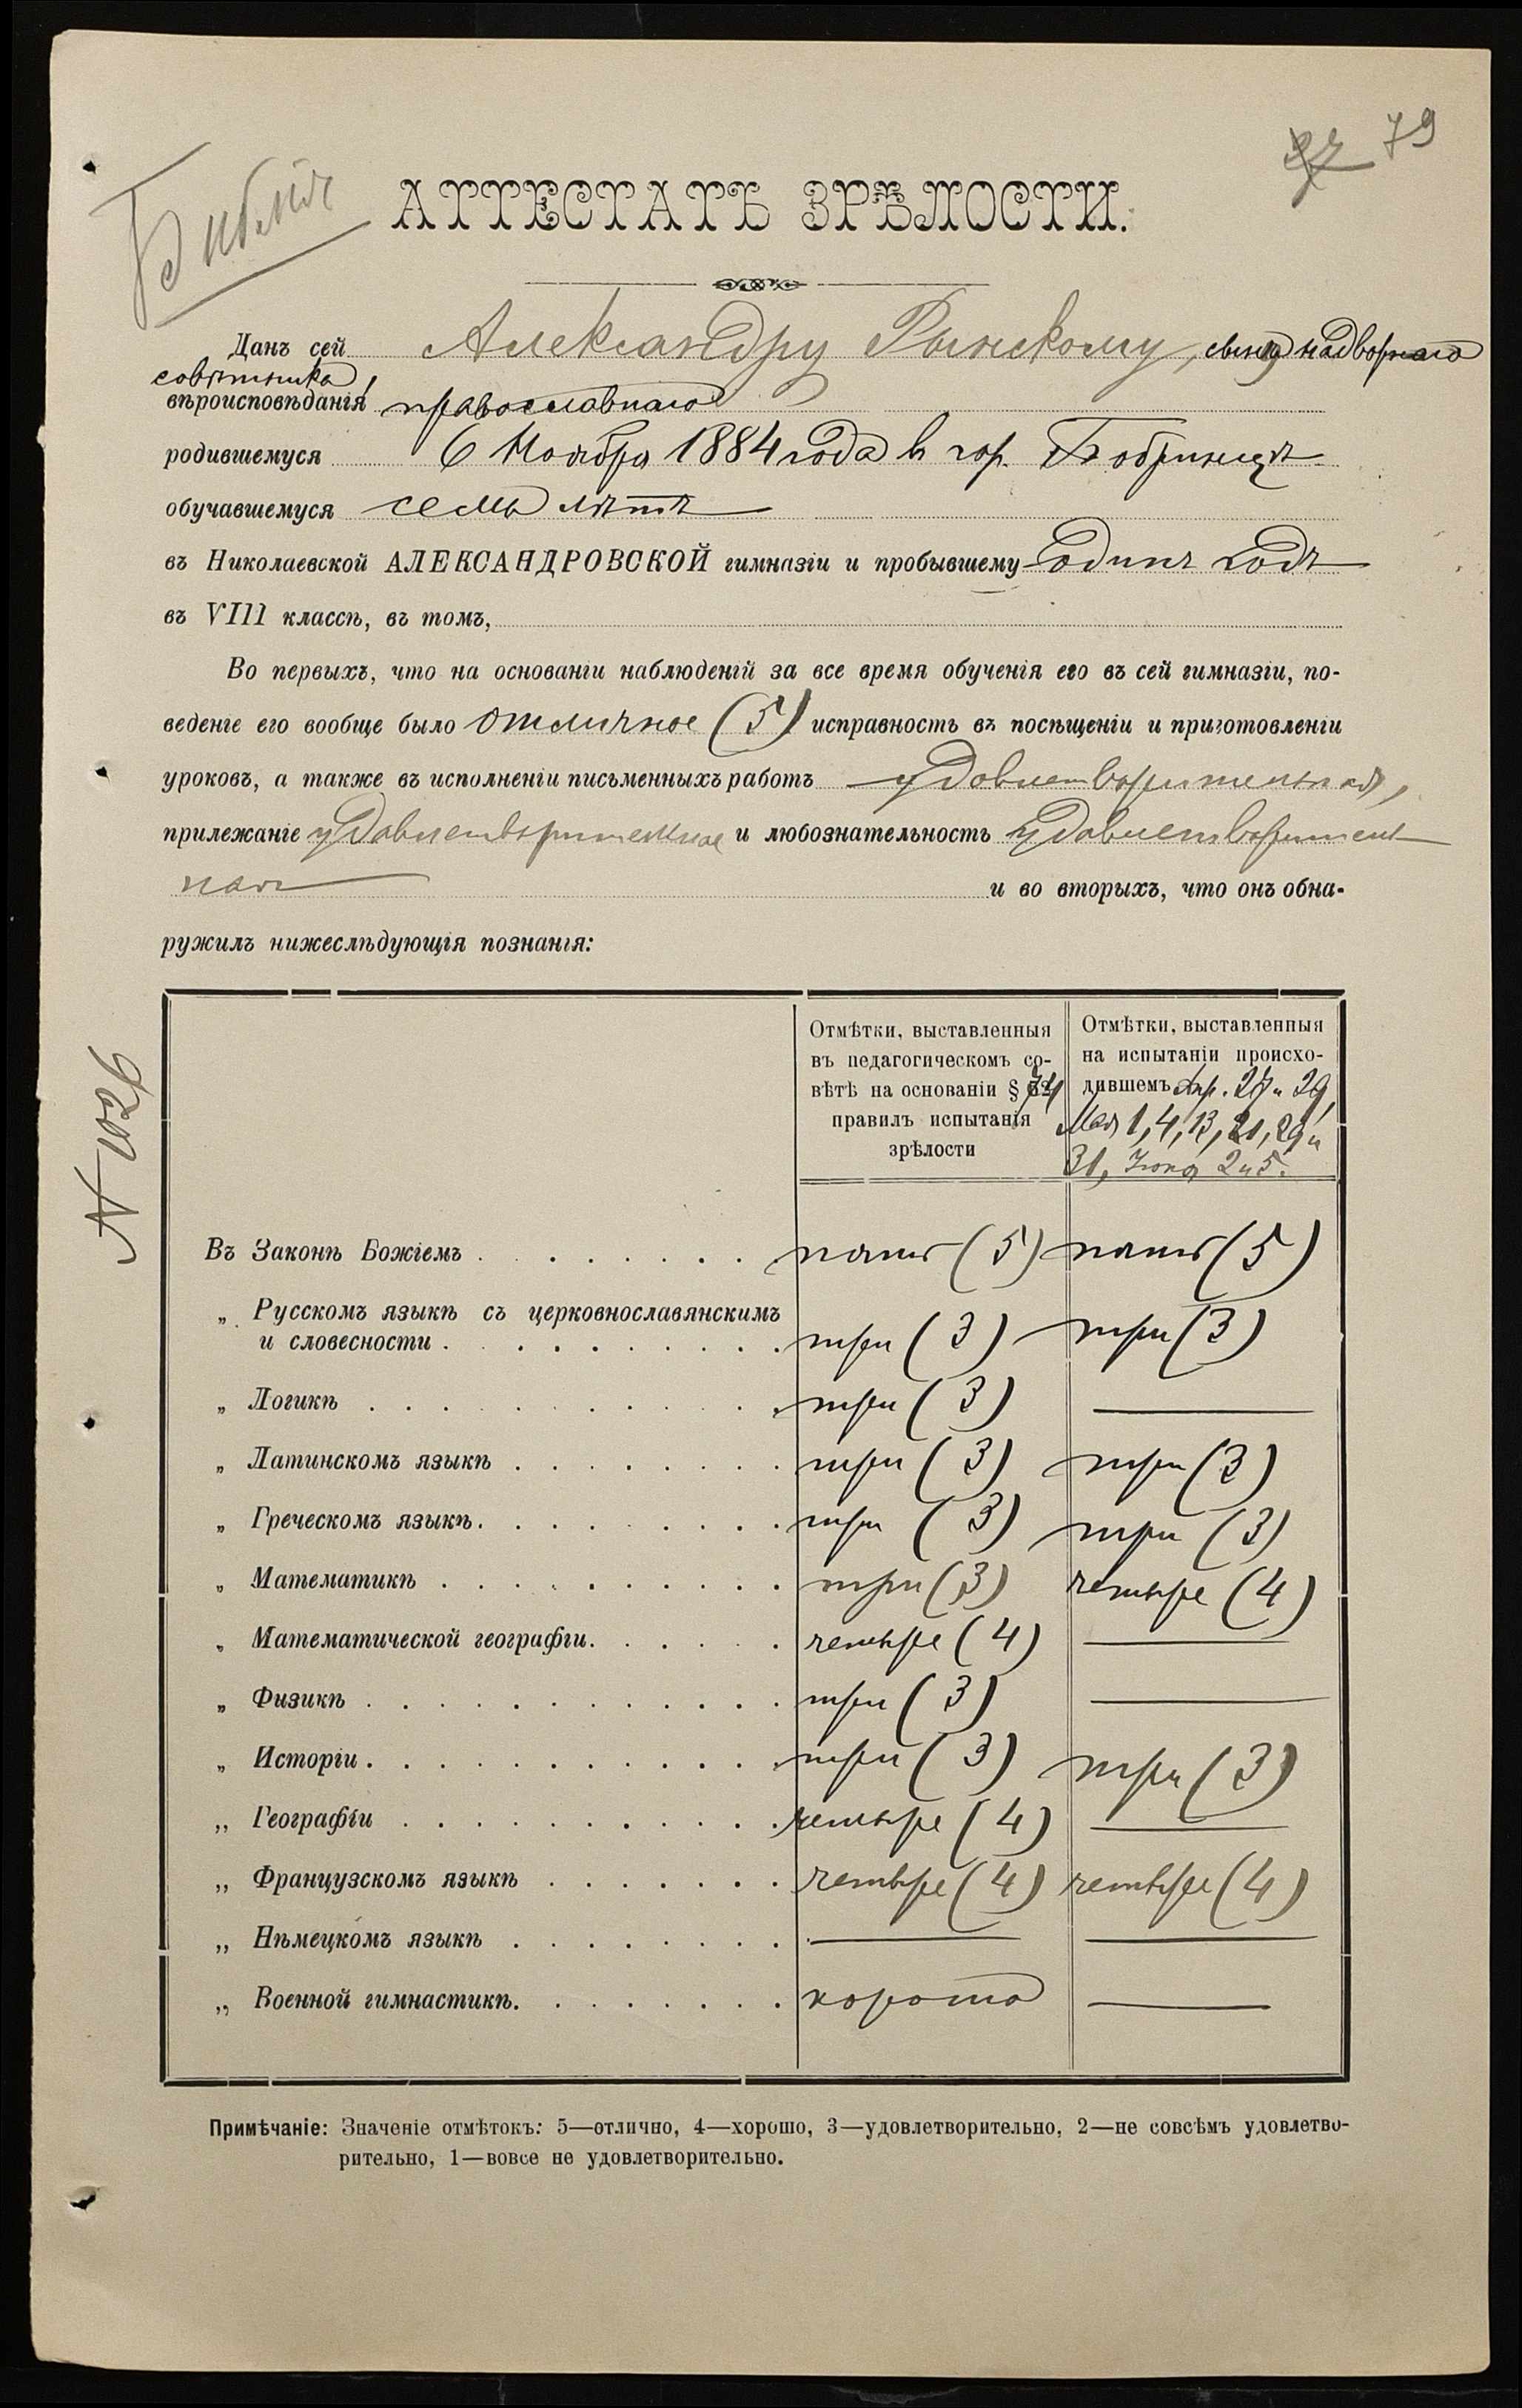 79
Библiя
АТТЕСТАТЪ ЗРѢЛОСТИ.
Данъ сей Александру Рынскому, сыну надворнаго
совѣтника,
вѣроисповѣданія православнаго
родившемуся 6 Ноября 1884 года въ гор. Бобринцѣ
обучавшемуся семь лѣтъ
въ Николаевской АЛЕКСАНДРОВСКОЙ гимназіи и пробывшему одинъ годъ
въ VIII классѣ, въ томъ,
Во первыхъ, что на основаніи наблюденій за все время обученія его въ сей гимназіи, по-
веденіе его вообще было отличное (5) исправность въ посѣщеніи и приготовленіи
уроковъ, а также въ исполненіи письменныхъ работъ удовлетворительная,
прилежаніе удовлетворительное и любознательность удовлетворитель-
ная и во вторыхъ, что онъ обна-
ружилъ нижеслѣдующія познанія:
Отмѣтки, выставленныя
въ педагогическомъ со-
вѣтѣ на основаніи § 74
правилъ испытанія
зрѣлости
Отмѣтки, выставленныя
на испытаніи происхо-
дившемъ Апр. 27 и 29,
Мая 1, 4, 13, 21, 29 и
31, Іюня 2 и 5.
Въ Законѣ Божіемъ . . . . . . . . пять (5) пять (5)
„ Русскомъ языкѣ съ церковнославянскимъ
и словесности . . . . . . . . . . три (3) три (3)
„ Логикѣ . . . . . . . . . . . . три (3) —
„ Латинскомъ языкѣ . . . . . . . . три (3) три (3)
„ Греческомъ языкѣ. . . . . . . . . три (3) три (3)
„ Математикѣ . . . . . . . . . . три (3) четыре (4)
„ Математической географіи. . . . . . четыре (4) —
„ Физикѣ . . . . . . . . . . . . три (3) —
„ Исторіи . . . . . . . . . . . . три (3) три (3)
„ Географіи . . . . . . . . . . . четыре (4) —
„ Французскомъ языкѣ . . . . . . . четыре (4) четыре (4)
„ Нѣмецкомъ языкѣ . . . . . . . . — —
„ Военной гимнастикѣ. . . . . . . . хорошо —
Примѣчаніе: Значеніе отмѣтокъ: 5—отлично, 4—хорошо, 3—удовлетворительно, 2—не совсѣмъ удовлетво-
рительно, 1—вовсе не удовлетворительно.